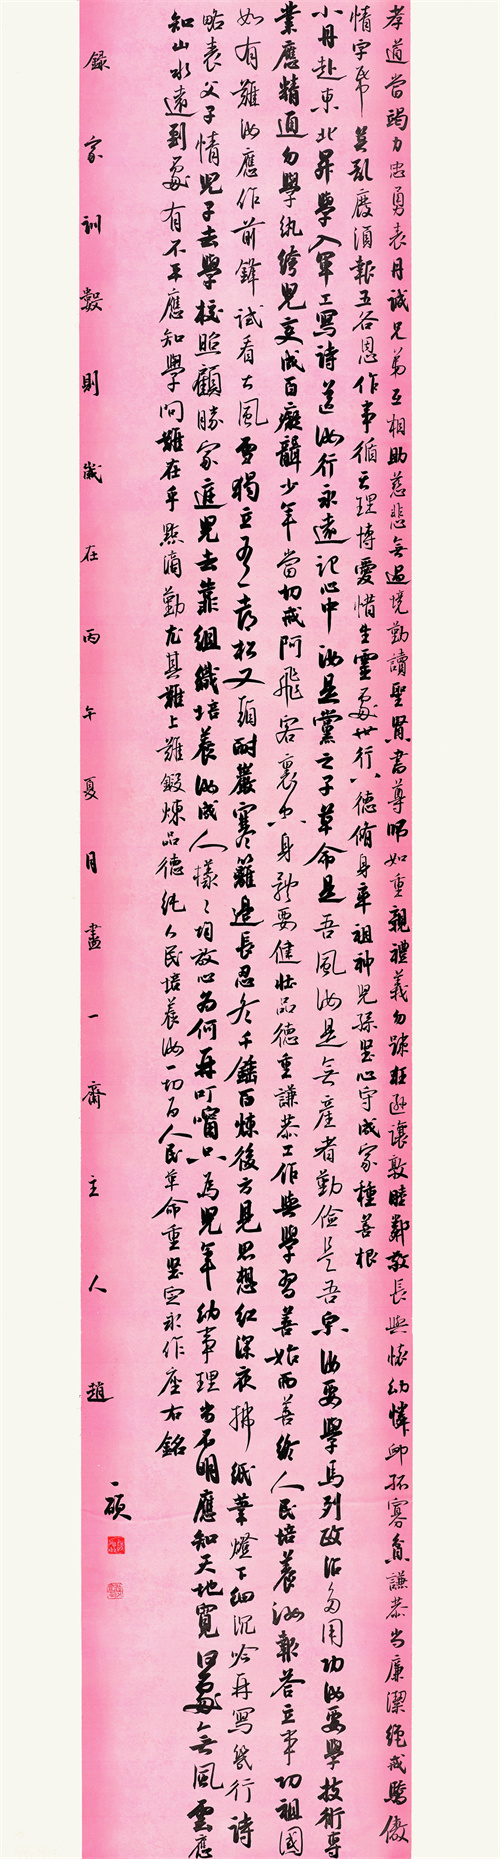 孝道當竭力忠勇表丹誠兄弟互相助慈悲無過境勤讀聖賢書尊師如重親禮義勿踈狂遜讓敦睦鄰敬長與懷幼憐卹孤寡貧謙恭尚廉潔絕戒驕傲
情字帋莫亂廢須報五谷恩作事循天理博愛惜生靈處世行八德脩身率祖神兒孫堅心守成家種善根
小丹赴東北昇學入軍工寫詩送汝行永遠記心中汝是黨之子革命是吾風汝是無產者勤儉是吾宗汝要學馬列政治多用功汝要學技術專
業應精通勿學紈絝兒變成百癡聾少年當切戒阿飛客裏空身體要健壯品德重謙恭工作與學習善始而善終人民培養汝報答立事功祖國
如有難汝應作前鋒試看大風雪獨立有青松又耐嚴寒籬邊長忍冬千錘百煉後方見思想紅深夜拂紙筆燈下細沉吟再寫幾行詩
略表父子情兒子去學校照顧勝家庭兒去靠組織培養汝成人樣々均放心為何再叮嚀只為兒年幼事理尚不明應知天地寬何處無風雲應
知山水遠到處有不平應知學問難在乎點滴勤尤其難上難鍛煉品德純人民培養汝一切為人民革命重堅定永作座右銘
錄家訓數則歲在丙午夏月畫一齋主人趙一碩